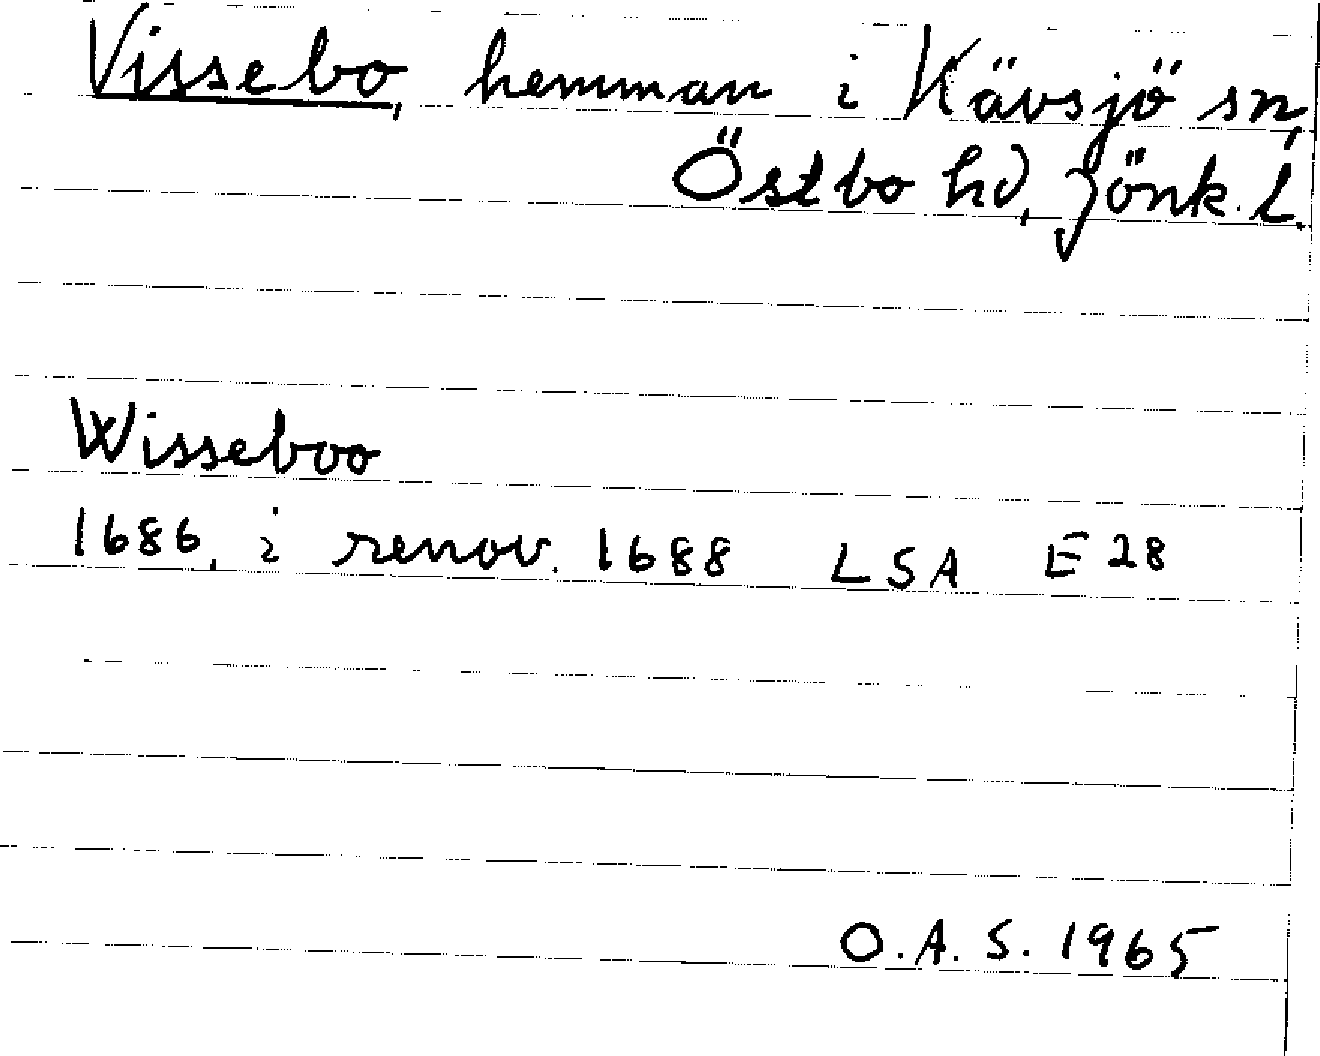 Vissebo, hemman i Kävsjö sn,
Östbo hd, Jönk. l.
Wisseboo
1686, i renov. 1688 LSA E28
O.A.S. 1965